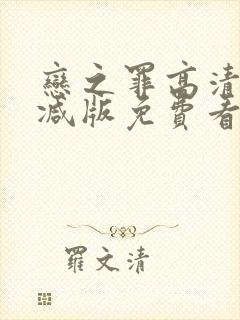 戀之罪高清
減版免費看
羅文清